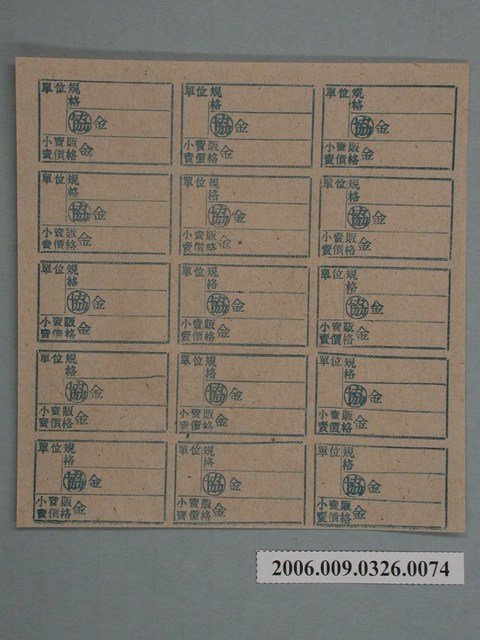 單位規
格
協 金
小賣販
賣價格 金
單位規
格
協 金
小賣販
賣價格 金
單位規
格
協 金
小賣販
賣價格 金
單位規
格
協 金
小賣販
賣價格 金
單位規
格
協 金
小賣販
賣價格 金
單位規
格
協 金
小賣販
賣價格 金
單位規
格
協 金
小賣販
賣價格 金
單位規
格
協 金
小賣販
賣價格 金
單位規
格
協 金
小賣販
賣價格 金
單位規
格
協 金
小賣販
賣價格 金
單位規
格
協 金
小賣販
賣價格 金
單位規
格
協 金
小賣販
賣價格 金
單位規
格
協 金
小賣販
賣價格 金
單位規
格
協 金
小賣販
賣價格 金
單位規
格
協 金
小賣販
賣價格 金
2006.009.0326.0074